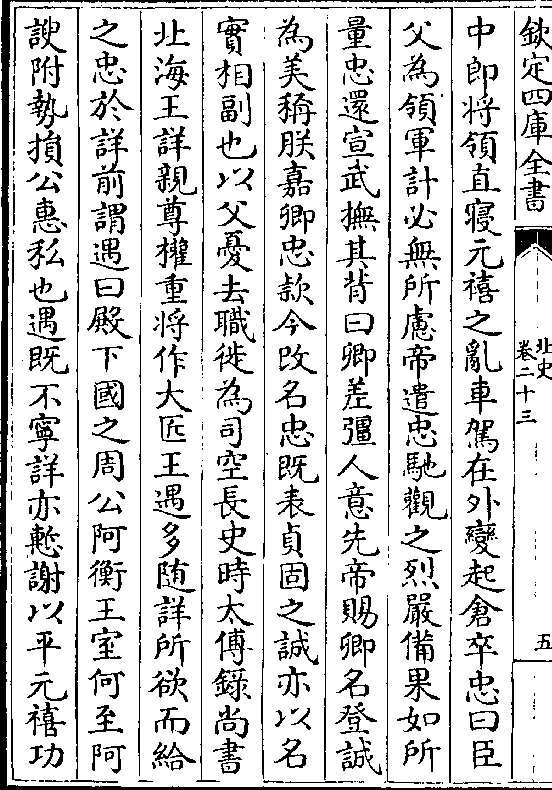 欽定四庫全書
北史
卷二十三
五
中郎将領直寝元禧之亂車駕在外變起倉卒忠曰臣
父為領軍計必無所慮帝遣忠馳觀之烈嚴備果如所
量忠還宣武撫其背曰卿差彊人意先帝賜卿名登誠
為美稱朕嘉卿忠款今改名忠既表貞固之誠亦以名
實相副也以父憂去職徙為司空長史時太傅錄尚書
北海王詳親尊權重将作大匠王遇多随詳所欲而給
之忠於詳前謂遇曰殿下國之周公阿衡王室何至阿
諛附勢損公惠私也遇既不寧詳亦慙謝以平元禧功